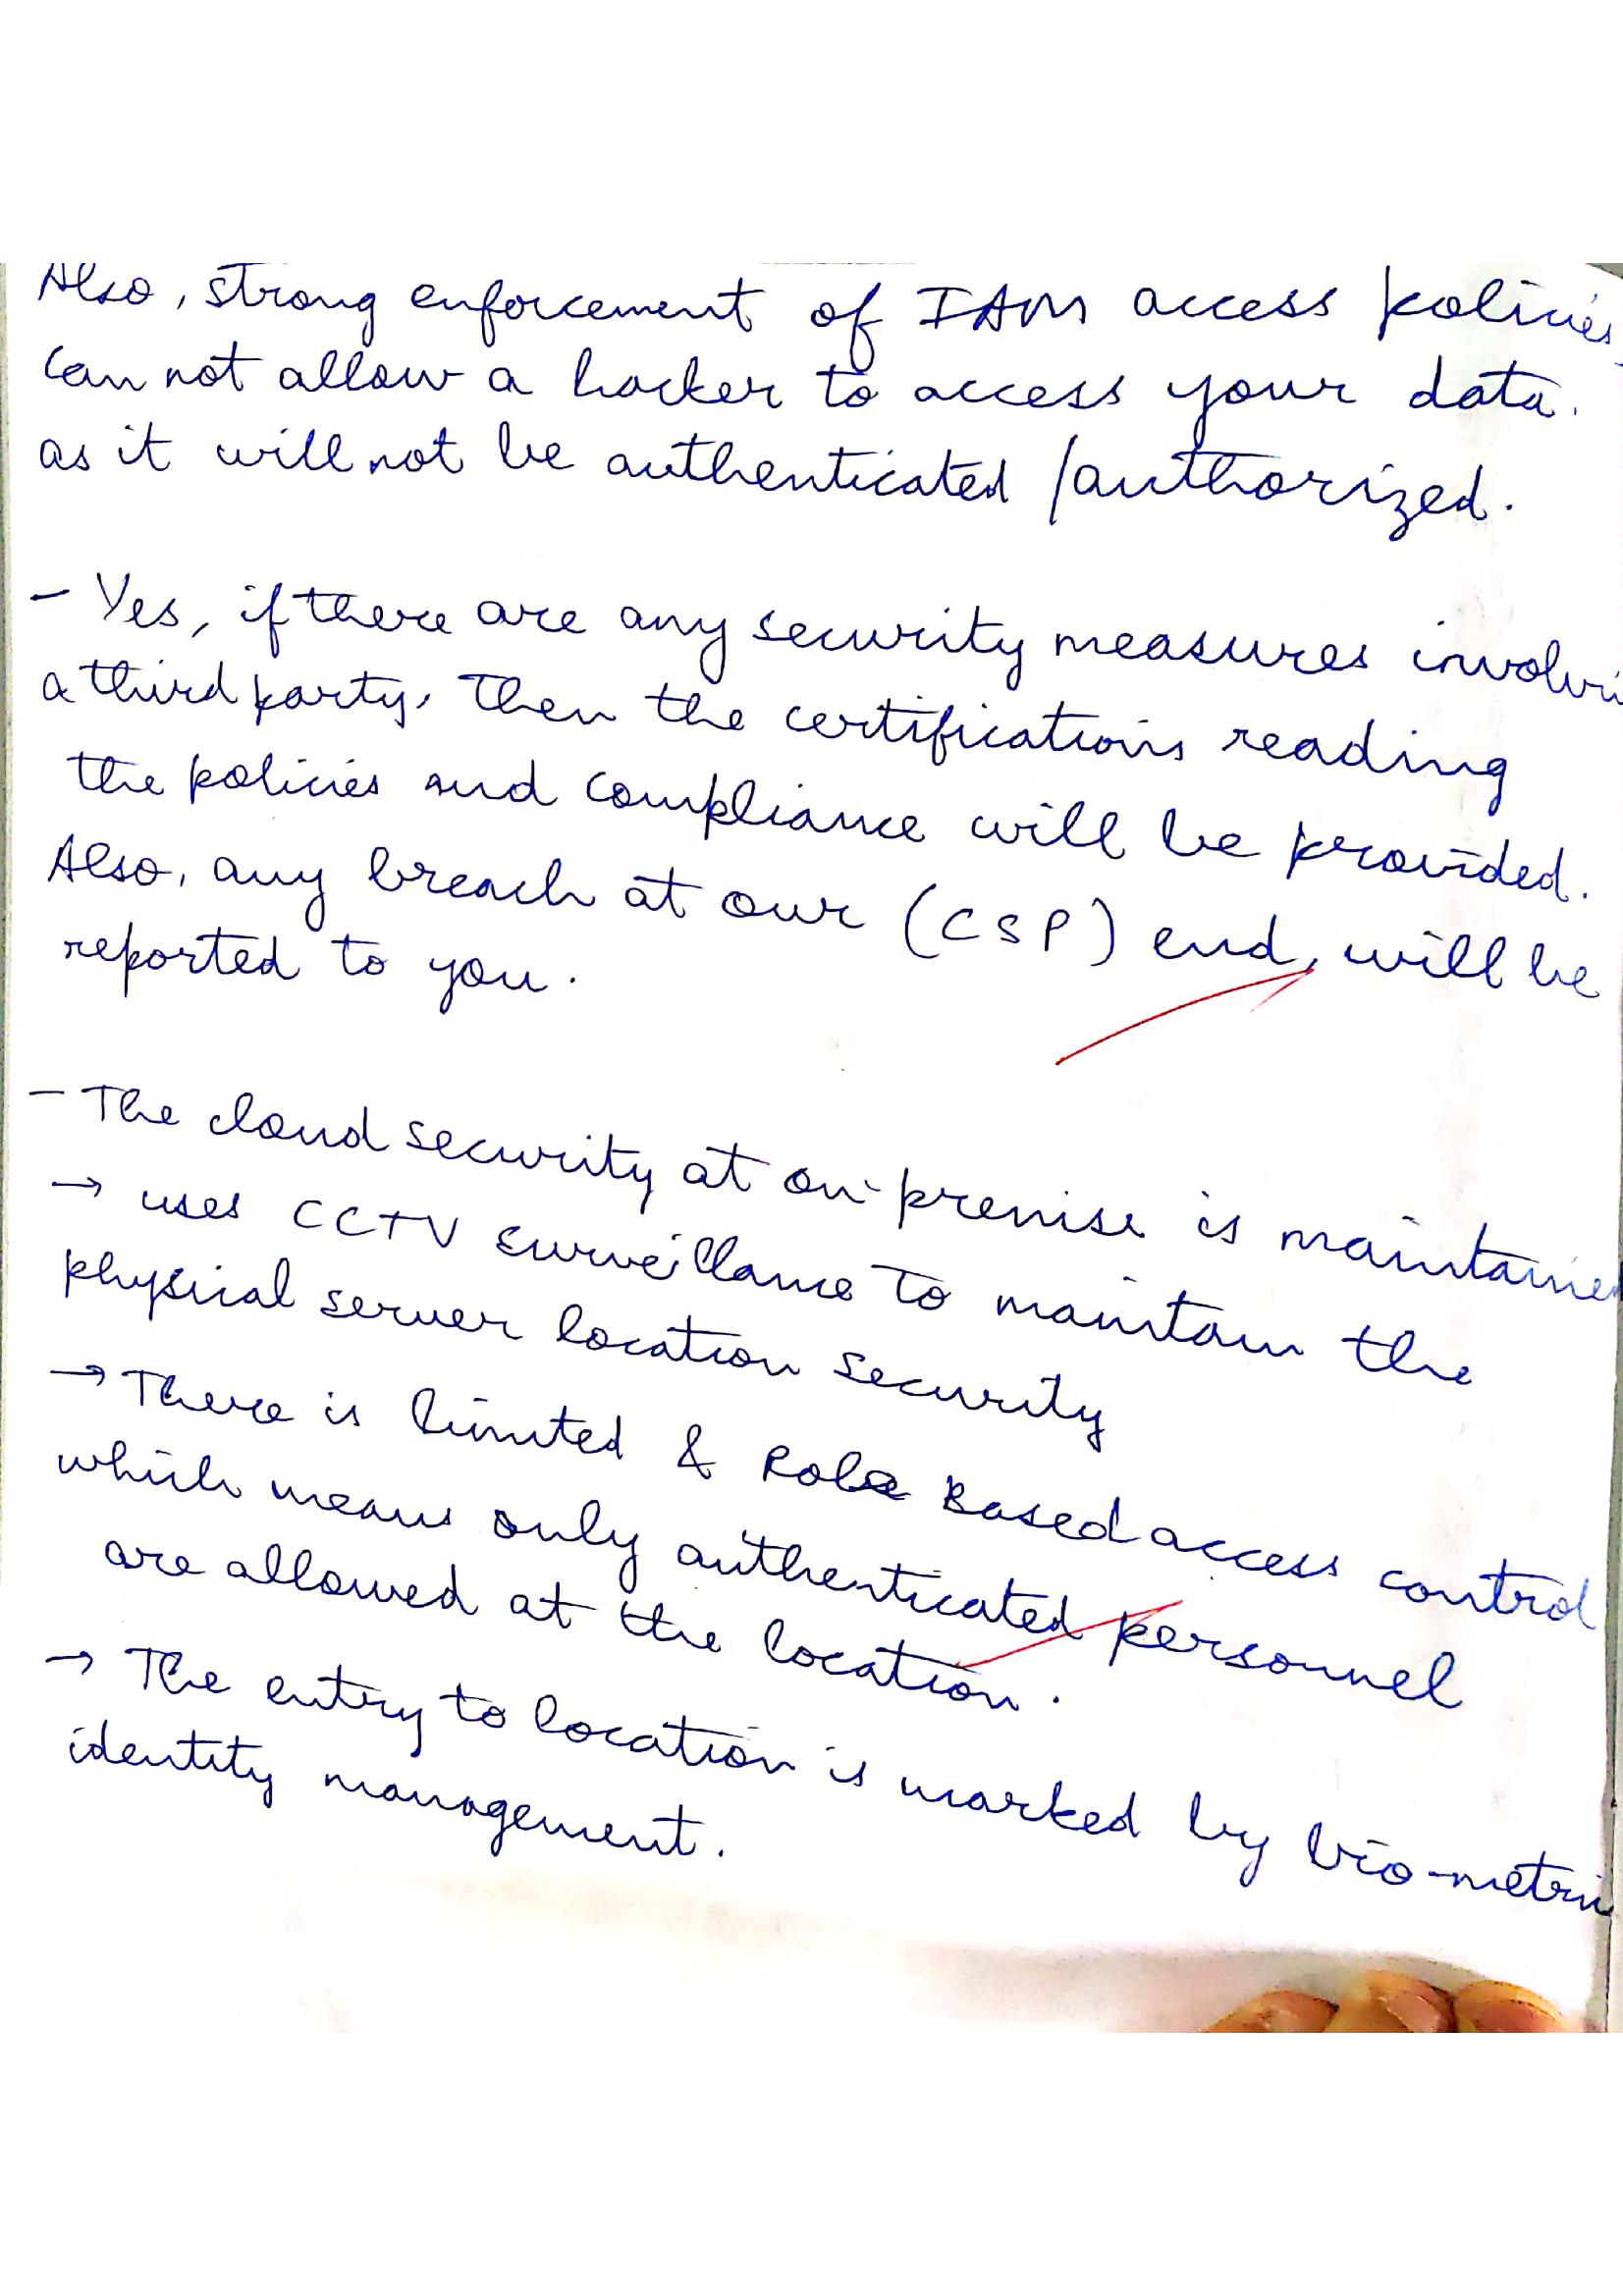 Also, strong enforcement of IAM access policies
can not allow a hacker to access your data.
as it will not be authenticated /authorized.
- Yes, if there are any security measures involvi
a third party, then the certifications reading
the policies and compliance will be provided.
Also, any breach at our (CSP) end, will be
reported to you.
- The cloud security at on-premise is maintained
→ uses CCTV surveillance to maintain the
physical server location security
→ There is limited & Role Based access control
which means only authenticated personnel
are allowed at the location.
→ The entry to location is marked by bio-metri
identity management.